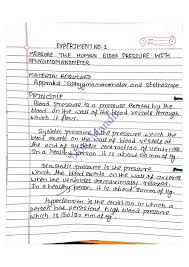 EXPERIMENT NO-1
MEASURE THE HUMAN BLOOD PRESSURE WITH
SPHYGMOMANOMETER
MATERIAL REQUIRED
Apparatus : Sphygmomanometer and Stethoscope
PRINCIPLE
Blood pressure is a pressure exerted by the
blood on the wall of the blood vessels through
which it flow.
Systolic pressure is the pressure which the
blood exerts on the wall of blood vessels at
the end of systolic contraction of ventricles.
In a healthy person, it is about 120 mm of Hg.
Diastolic pressure is the pressure
which the blood exerts on the wall of
when the ventricles maximally relaxed.
In a healthy person, it is about 80 mm of Hg.
Hypertension is the condition in which a
person has persistent high blood pressure
which is 150/90 mm of Hg.